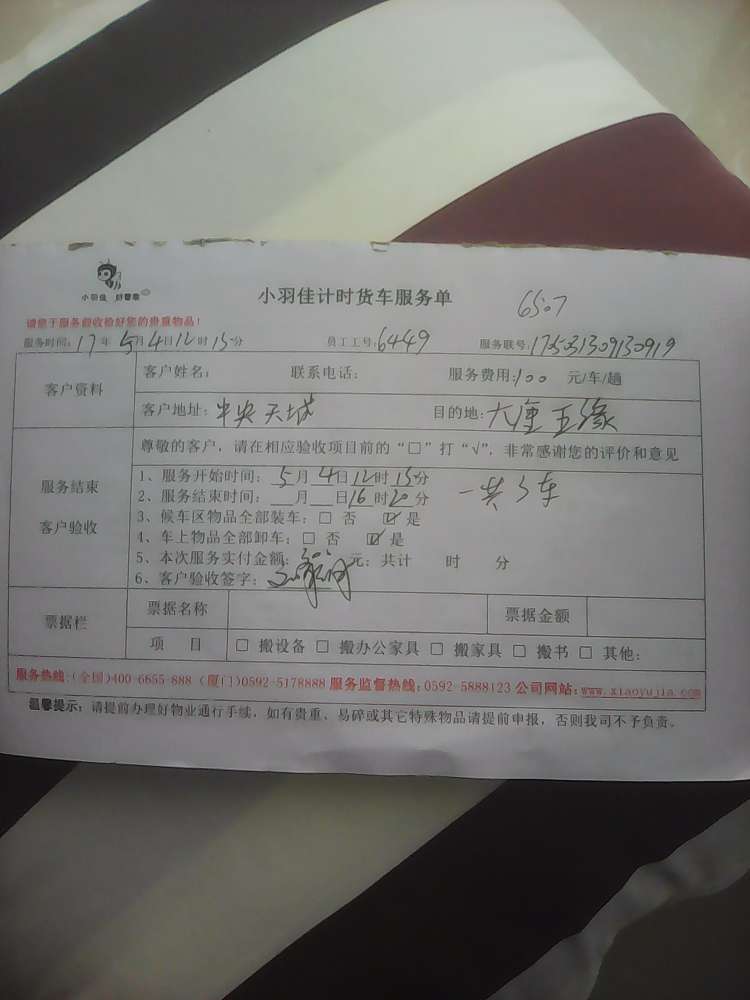 小羽佳 好管家
小羽佳计时货车服务单
6507
请您于服务前收检好您的贵重物品！
服务时间：17年5月4日12时15分 员工工号：6449 服务联号：
客户资料
客户姓名： 联系电话： 服务费用：100 元/车/趟
客户地址：中央天城 目的地：大唐五缘
服务结束
客户验收
尊敬的客户，请在相应验收项目前的“□”打“√”，非常感谢您的评价和意见
1、服务开始时间：5月4日12时15分
2、服务结束时间：__月__日16时20分
一共3车
3、候车区物品全部装车：□ 否 ☑ 是
4、车上物品全部卸车：□ 否 ☑ 是
5、本次服务实付金额： 元；共计 时 分
6、客户验收签字：
票据栏
票据名称 票据金额
项 目 □ 搬设备 □ 搬办公家具 □ 搬家具 □ 搬书 □ 其他：
服务热线：(全国)400-6655-888 (厦门)0592-5178888 服务监督热线：0592-5888123 公司网站：www.xiaoyujia.com
温馨提示：请提前办理好物业通行手续，如有贵重、易碎或其它特殊物品请提前申报，否则我司不予负责。